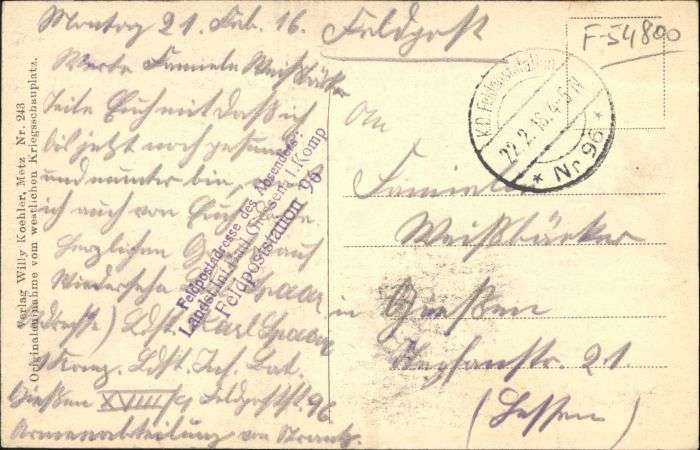 Montag 21. Feb. 16.
Feldpost
F-54800
Werte Familie Weißbäcker
Teile Euch mit daß ich
bis jetzt noch gesund
und munter bin,
ich auch von Euch
herzlichen auf
Wiedersehn
Adresse) Ldst. Carl
1 Komp. Ldst. Inf. Bat.
Gießen XVIII/9 Feldpostst. 96
Armeeabteilung von Strantz.
Verlag Willy Koehler, Metz Nr. 243
Originalaufnahme vom westlichen Kriegsschauplatz.
Feldpostadresse des Absenders:
Landst. Inf. Batl. Giessen 1. Komp
Feldpoststation 96
K.D. Feldpoststation
22.2.16. 4-5 N
* Nr 96 *
An
Familie
Weißbäcker
in Gießen
21
(Hessen)